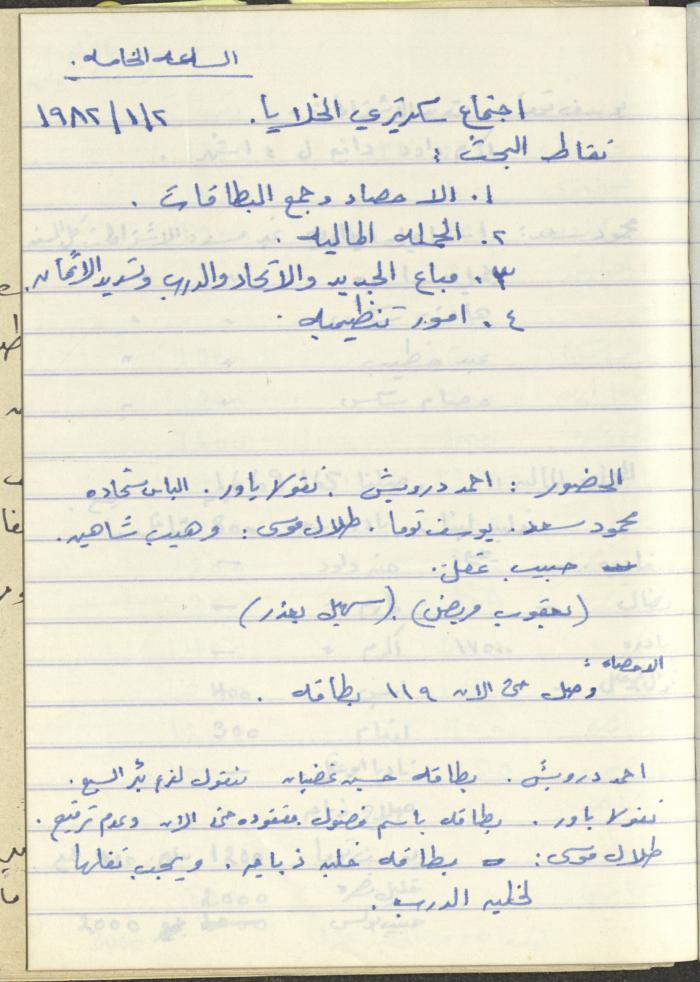 الساعه الخامسه .
اجتماع سكرتيري الخلايا . ١٩٨٢/١/٢
نقاط البحث :
١. الاحصاء وجمع البطاقات .
٢. الحمله الماليه .
٣. مباع الجديد والاتحاد والدرب وتسديد الاثمان .
٤. امور تنظيميه .
الحضور : احمد درويش . نقولا ياور . الياس شحاده
محمود سعد . يوسف توما . طلال موسى : وهيب شاهين .
حبيب عقل .
(يعقوب مريض) . (سهيل بعذر)
الاحصاء :
وصل حتى الان ١١٩ بطاقه .
احمد درويش . بطاقه حسين غضبان تنقول لفرع بئر السبع .
نقولا ياور . بطاقه باسم فصول مفقوده حتى الان وعدم ترقيع .
طلال موسى : بطاقه خليه ذباجه . ويجب نقلها
لخلية الدرب .